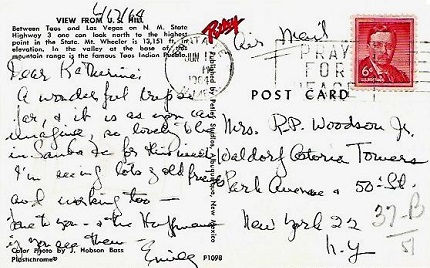 4/17/64
VIEW FROM U. S. HILL
Between Taos and Las Vegas on N. M. State
Highway 3 one can look north to the highest
point in the State. Mt. Wheeler is 13,151 ft.
elevation. In the valley at the base of this
mountain range is the famous Taos Indian Pueblo.
Dear Katherine:
A wonderful trip so
far, & it is as you can
imagine, so lovely here
in Santa Fe for this week
I'm seeing lots of old friends
and working too —
love to you & the Hoffmans
if you see them — Emily
Color Photo by J. Hobson Bass
Plastichrome®
P1098
Petley
Published by Petley Studios, Albuquerque, New Mexico
JUN 1
1964
PRAY
FOR
PEACE
6¢
Air Mail
POST CARD
Mrs. R.P. Woodson Jr.
Waldorf Astoria Towers
Park Avenue & 50th St.
New York 22
N.Y.
37-B
51